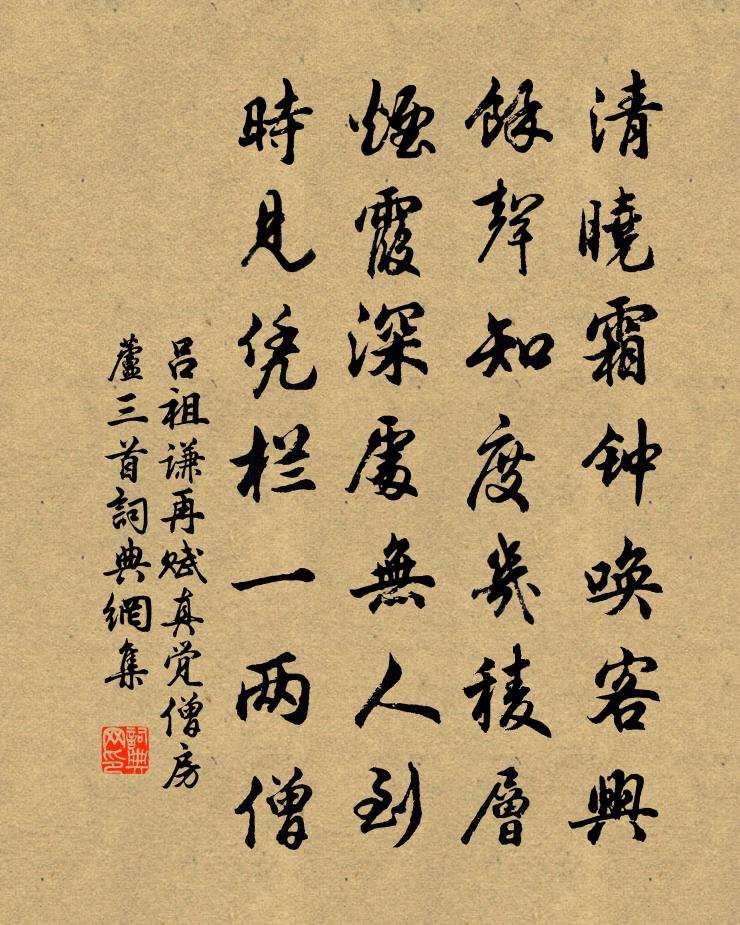 清曉霜钟唤客興
餘聲知度幾稜層
煙霞深處無人到
時見凭栏一两僧
吕祖谦再赋真觉僧房
蘆三首詞典網集
詞典网印